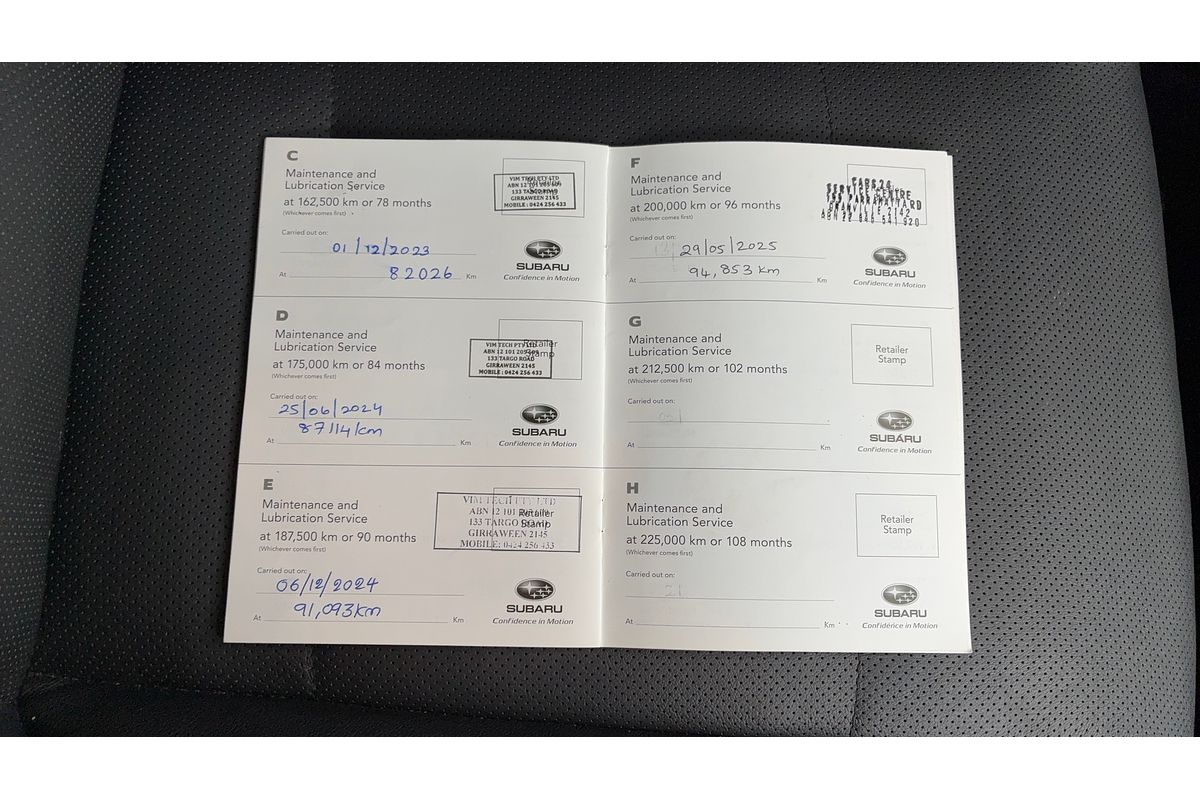 C
Maintenance and
Lubrication Service
at 162,500 km or 78 months
(Whichever comes first)
VIM TECH PTY LTD
133 TARGO ROAD
GIRRAWEEN 2145
MOBILE : 0424 256 433
Carried out on:
01/12/2023
At 82026 Km
SUBARU
Confidence in Motion
D
Maintenance and
Lubrication Service
at 175,000 km or 84 months
(Whichever comes first)
Retailer
Stamp
VIM TECH PTY LTD
133 TARGO ROAD
GIRRAWEEN 2145
MOBILE : 0424 256 433
Carried out on:
25/06/2024
87114 km
At Km
SUBARU
Confidence in Motion
E
Maintenance and
Lubrication Service
at 187,500 km or 90 months
(Whichever comes first)
Retailer
Stamp
VIM TECH PTY LTD
133 TARGO ROAD
GIRRAWEEN 2145
MOBILE: 0424 256 433
Carried out on:
06/12/2024
91,093 km
At Km
SUBARU
Confidence in Motion
F
Maintenance and
Lubrication Service
at 200,000 km or 96 months
(Whichever comes first)
SERVICE CENTRE
GRANVILLE 2142
Carried out on:
29/05/2025
94,853 km
At Km
SUBARU
Confidence in Motion
G
Maintenance and
Lubrication Service
at 212,500 km or 102 months
(Whichever comes first)
Retailer
Stamp
Carried out on:
At Km
SUBARU
Confidence in Motion
H
Maintenance and
Lubrication Service
at 225,000 km or 108 months
(Whichever comes first)
Retailer
Stamp
Carried out on:
21
At Km
SUBARU
Confidence in Motion